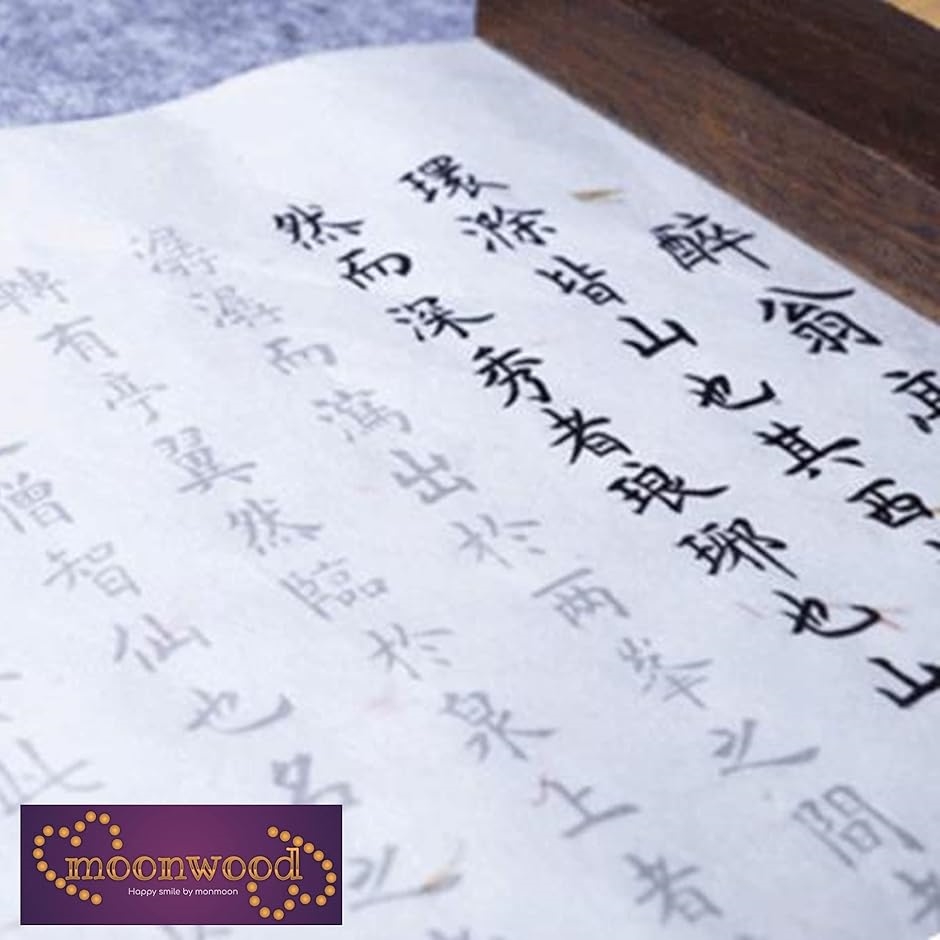 醉翁
環滁皆山也其西
然而深秀者琅琊也山
潺潺而瀉出於兩峯之間
轉有亭翼然臨於泉上者
僧智仙也名之
moonwood
Happy smile by monmoon